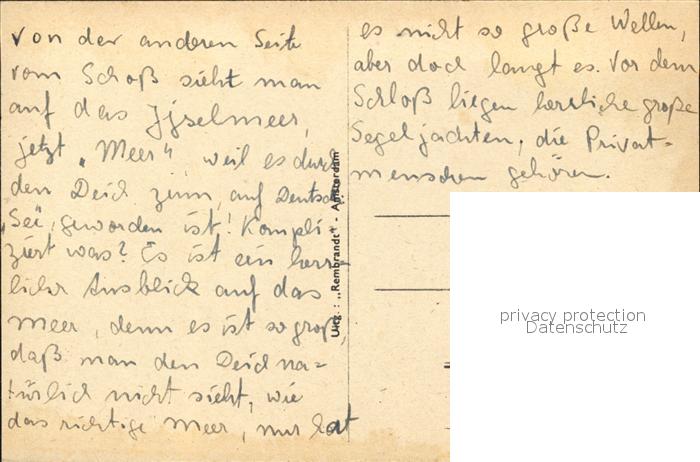 von der anderen Seite
vom Schoß sieht man
auf das Ijselmeer,
jetzt „Meer“, weil es durch
den Deich zum, auf Deutsch
„See“, geworden ist! Kompli-
ziert was? Es ist ein herr-
licher Ausblick auf das
Meer, denn es ist so groß,
daß man den Deich na-
türlich nicht sieht, wie
das richtige Meer, nur hat
es nicht so große Wellen,
aber doch langt es. Vor dem
Schloß liegen herrliche große
Segeljachten, die Privat-
menschen gehören.
Uitg.: „Rembrandt“ - Amsterdam
privacy protection
Datenschutz